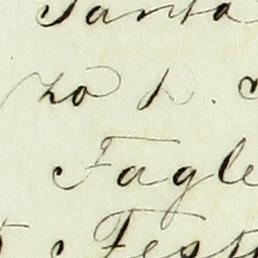 Santa
zo d.
Fagle
Fest